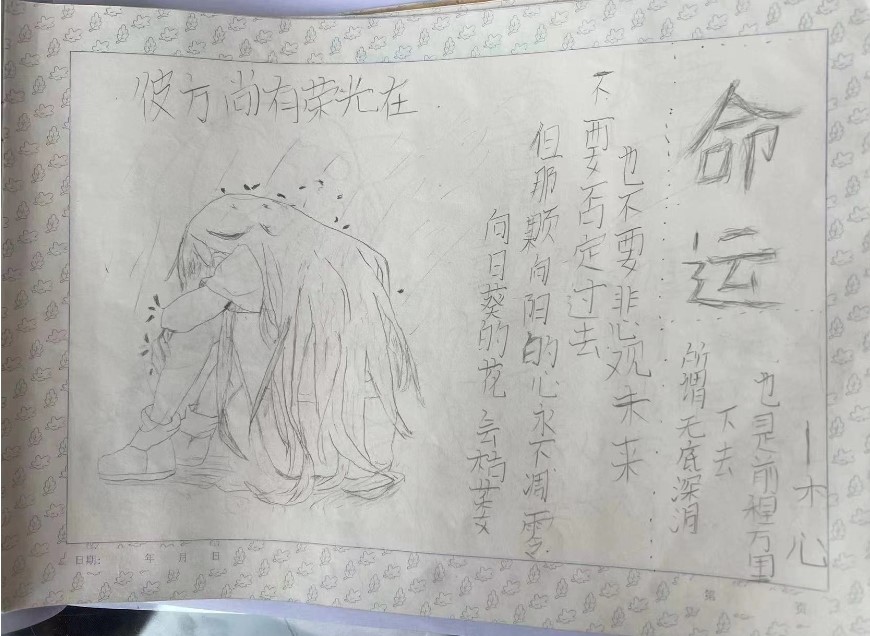 彼方尚有荣光在
向日葵的花会枯萎
但那颗向阳的心永不凋零
不要否定过去
也不要悲观未来
命运
所谓无底深渊
下去
也是前程万里
—木心
日期: 年 月 日
第 页